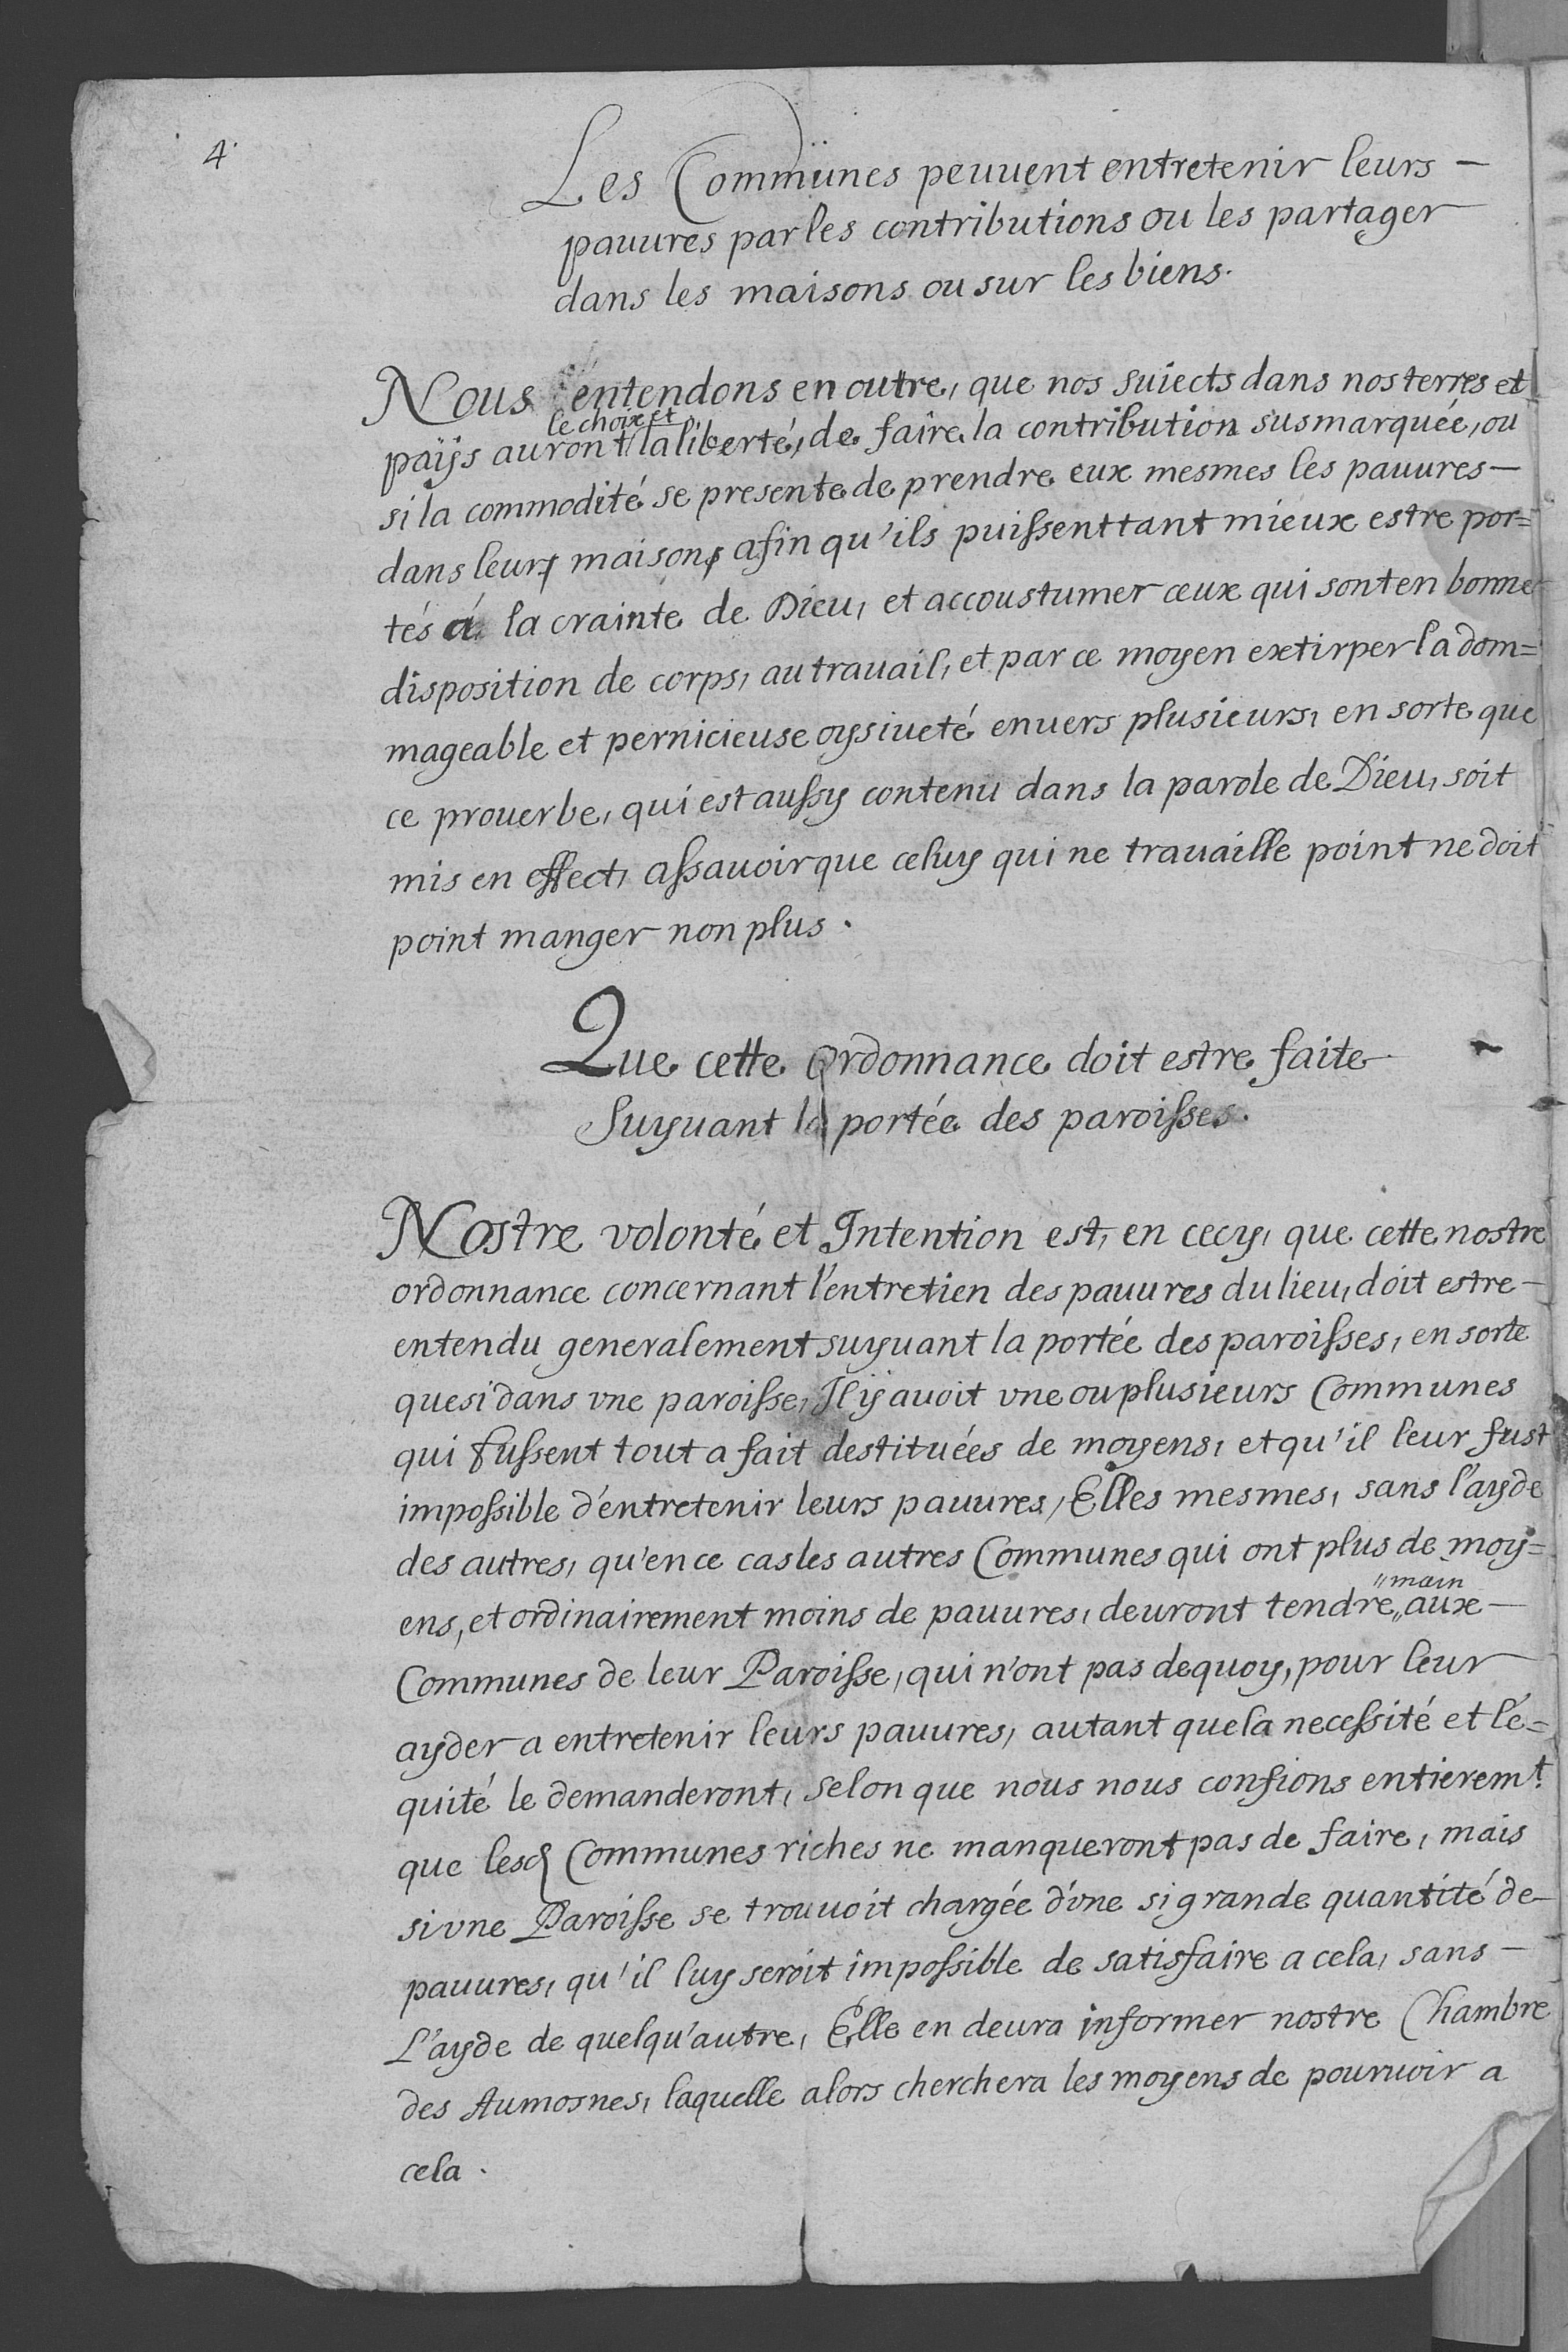 4.
Les Communes peuuent entretenir leurs —
pauures par les contributions ou les partager
dans les maisons ou sur les biens.
Nous entendons en outre, que nos suiects dans nos terres et
le choix et
paÿs auront la liberté, de faire la contribution susmarquée, ou
si la commodité se presente de prendre eux mesmes les pauures —
dans leurs maisons afin qu'ils puissent tant mieux estre por=
tés á la crainte de Dieu, et accoustumer ceux qui sont en bonne
disposition de corps, au trauail, et par ce moyen extirper la dom=
mageable et pernicieuse oysiueté enuers plusieurs, en sorte que
ce prouerbe, qui est aussy contenu dans la parole de Dieu, soit
mis en effect, assauoir que celuy qui ne trauaille point ne doit
point manger non plus.
Que cette ordonnance doit estre faite
Suyuant la portée des paroisses.
Nostre volonté et Intention est, en cecy, que cette nostre
ordonnance concernant l'entretien des pauures du lieu, doit estre —
entendu generalement suyuant la portée des paroisses, en sorte
que si dans vne paroisse, Il ÿ auoit vne ou plusieurs Communes
qui fussent tout a fait destituées de moyens, et qu'il leur fust
impossible d'entretenir leurs pauures, Elles mesmes, sans l'ayde
des autres, qu'en ce cas les autres Communes qui ont plus de moy=
"main
ens, et ordinairement moins de pauures, deuront tendre „ aux —
Communes de leur Paroisse, qui n'ont pas dequoy, pour leur
ayder a entretenir leurs pauures, autant que la necessité et l'é=
quité le demanderont, selon que nous nous confions entierem.t
que lesd Communes riches ne manqueront pas de faire, mais
si vne Paroisse se trouuoit chargée d'vne si grande quantité de —
pauures, qu'il luy seroit impossible de satisfaire a cela, sans —
L'ayde de quelqu'autre, Elle en deura informer nostre Chambre
des Aumosnes, laquelle alors cherchera les moyens de pouruoir a
cela.